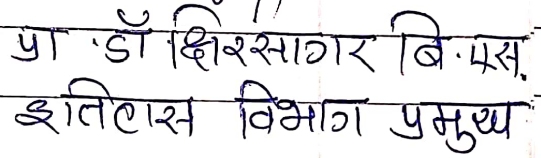 प्रा. डॉ. क्षिरसागर बि. एस.
इतिहास विभाग प्रमुख